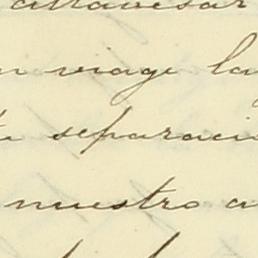 atravesar
viage la
separaci
nuestro a